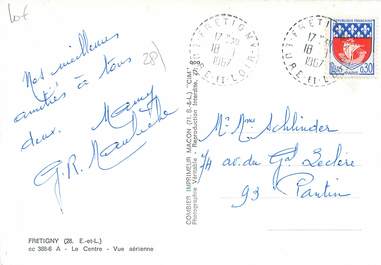 lot
28)
Nos meilleures
amitiés à tous
deux. Mamy
G.R.
FRETIGNY (28. E.-et-L.)
cc 388-6 A - Le Centre - Vue aérienne
COMBIER IMPRIMEUR MACON (71. S.-&-L.) "CIM"
Photographie Véritable - Reproduction Interdite
17 H
18
1967
E.-ET-LOIR
17 H
18
1967
E.-ET-LOIR
REPUBLIQUE FRANÇAISE
PARIS 0,30
Mr Mme Schlinder
74 av. du Gal Leclerc
93 Pantin